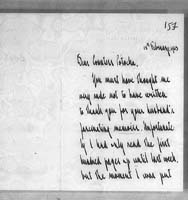 157
10th February 1913
Dear Countess Potocka,
You must have thought me
very rude not to have written
to thank you for your husband's
fascinating memoirs. Unfortunate
ly I had only read the first
hundred pages up until last week,
but the moment I was just